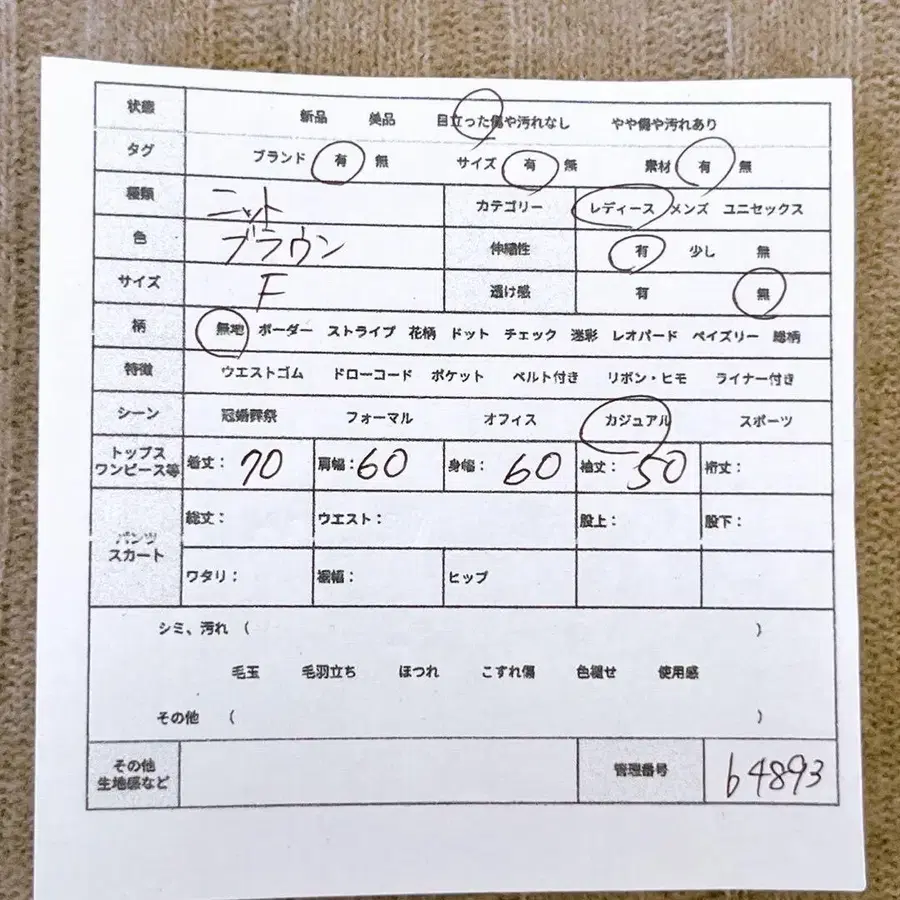 状態 新品 美品 目立った傷や汚れなし やや傷や汚れあり
タグ ブランド 有 無 サイズ 有 無 素材 有 無
種類 ニット カテゴリー レディース メンズ ユニセックス
色 ブラウン 伸縮性 有 少し 無
サイズ F 透け感 有 無
柄 無地 ボーダー ストライプ 花柄 ドット チェック 迷彩 レオパード ペイズリー 総柄
特徴 ウエストゴム ドローコード ポケット ベルト付き リボン・ヒモ ライナー付き
シーン 冠婚葬祭 フォーマル オフィス カジュアル スポーツ
トップス
ワンピース等 着丈: 70 肩幅: 60 身幅: 60 袖丈: 50 裄丈:
パンツ
スカート 総丈: ウエスト: 股上: 股下:
ワタリ: 裾幅: ヒップ
シミ、汚れ ( )
毛玉 毛羽立ち ほつれ こすれ傷 色褪せ 使用感
その他 ( )
その他
生地感など 管理番号 b4893